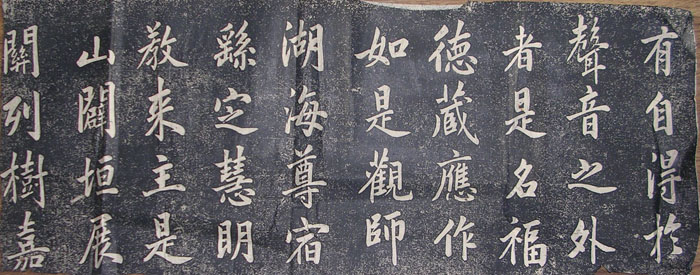 有自得於
聲音之外
者是名福
德藏應作
如是觀師
湖海尊宿
繇定慧明
教来主是
山闢垣展
關列樹嘉